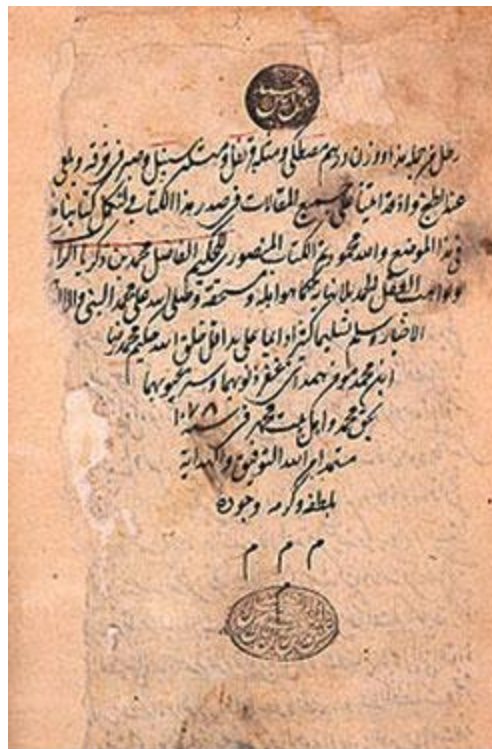 رطل خمر جمله مداووزن درهم مصطكى ومسك وقرنفل وسنبل وصبر فى خرقة ويلقى
عند الطبخ واذ قد اتينا على جميع المقالات فى صدر هذا الكتاب فلنكمل كتابنا
فى هذا الموضع والله محمود تم الكتاب المنصورى للحكيم الفاضل محمد بن زكريا الرازى
ولواهب العقل الحمد بلا نهاية كما هو اهله ومستحقه وصلى الله على محمد النبى وآله
الاخيار وسلم تسليما كثيرا دايما على يد اقل خلق الله حكيم محمد رضا
ابن محمد مومن همدانى غفر ذنوبهما وستر عيوبهما
بحق محمد واهل بيت محمد فى سنه ١٠٧٨
مستمدا من الله التوفيق والهداية
بلطفه وكرمه وجوده
م م م
م